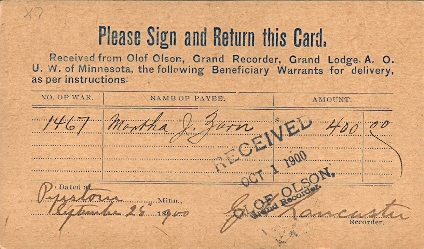 Please Sign and Return this Card.
Received from Olof Olson, Grand Recorder, Grand Lodge, A. O.
U. W. of Minnesota, the following Beneficiary Warrants for delivery,
as per instructions:
NO. OF WAR. NAME OF PAYEE. AMOUNT.
1467 Martha J. Zorn 400 00
RECEIVED
OCT 1 1900
OLOF OLSON,
Grand Recorder.
Dated at
Pipestone Minn.,
September 28 1900
Lancaster
Recorder.